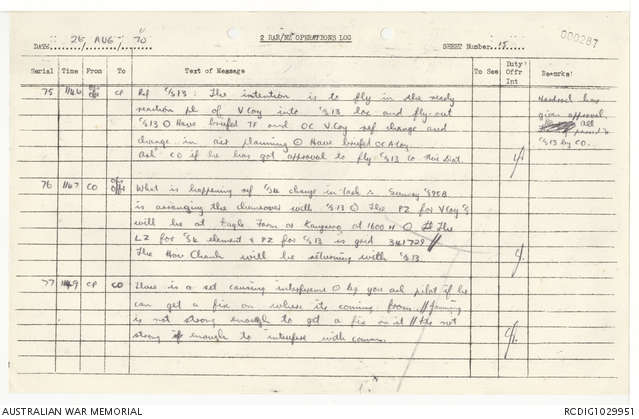 2 RAR/NZ OPERATIONS LOG
DATE 26 AUG 70
SHEET Number 15
000287
Serial Time From To Text of Message To See Duty Offr Int Remarks
75 1146 CP Ref C/S 13 : The intention is to fly in the ready
reaction pl of V Coy into C/S 13 loc and fly out
C/S 13 O Have briefed TF and OC V Coy ref change and
change in act planning O Have briefed OC A Coy
Ask CO if he has got approval to fly C/S 13
Handsel has
given approval.
C/S 13 by CO.
76 1147 CO What is happening ref change in task : Sunray
is arranging the changeover with C/S 13 O The PZ for V Coy
will be at Eagle Farm or Kanga at 1600 H O The
LZ for element & PZ for C/S 13 is grid 341729 //
The Hoi Chanh will be returning with C/S 13.
77 1149 CP CO There is a set causing interference O Req you ask pilot if he
can get a fix on where its coming from // Jamming
is not strong enough to get a fix on it // Its not
strong enough to interfere with comms.
AUSTRALIAN WAR MEMORIAL
RCDIG1029951